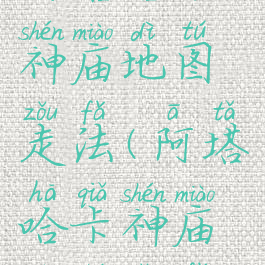 shén miào dì tú
神庙地图
zǒu fǎ ā tǎ
走法(阿塔
hā qiǎ shén miào
哈卡神庙